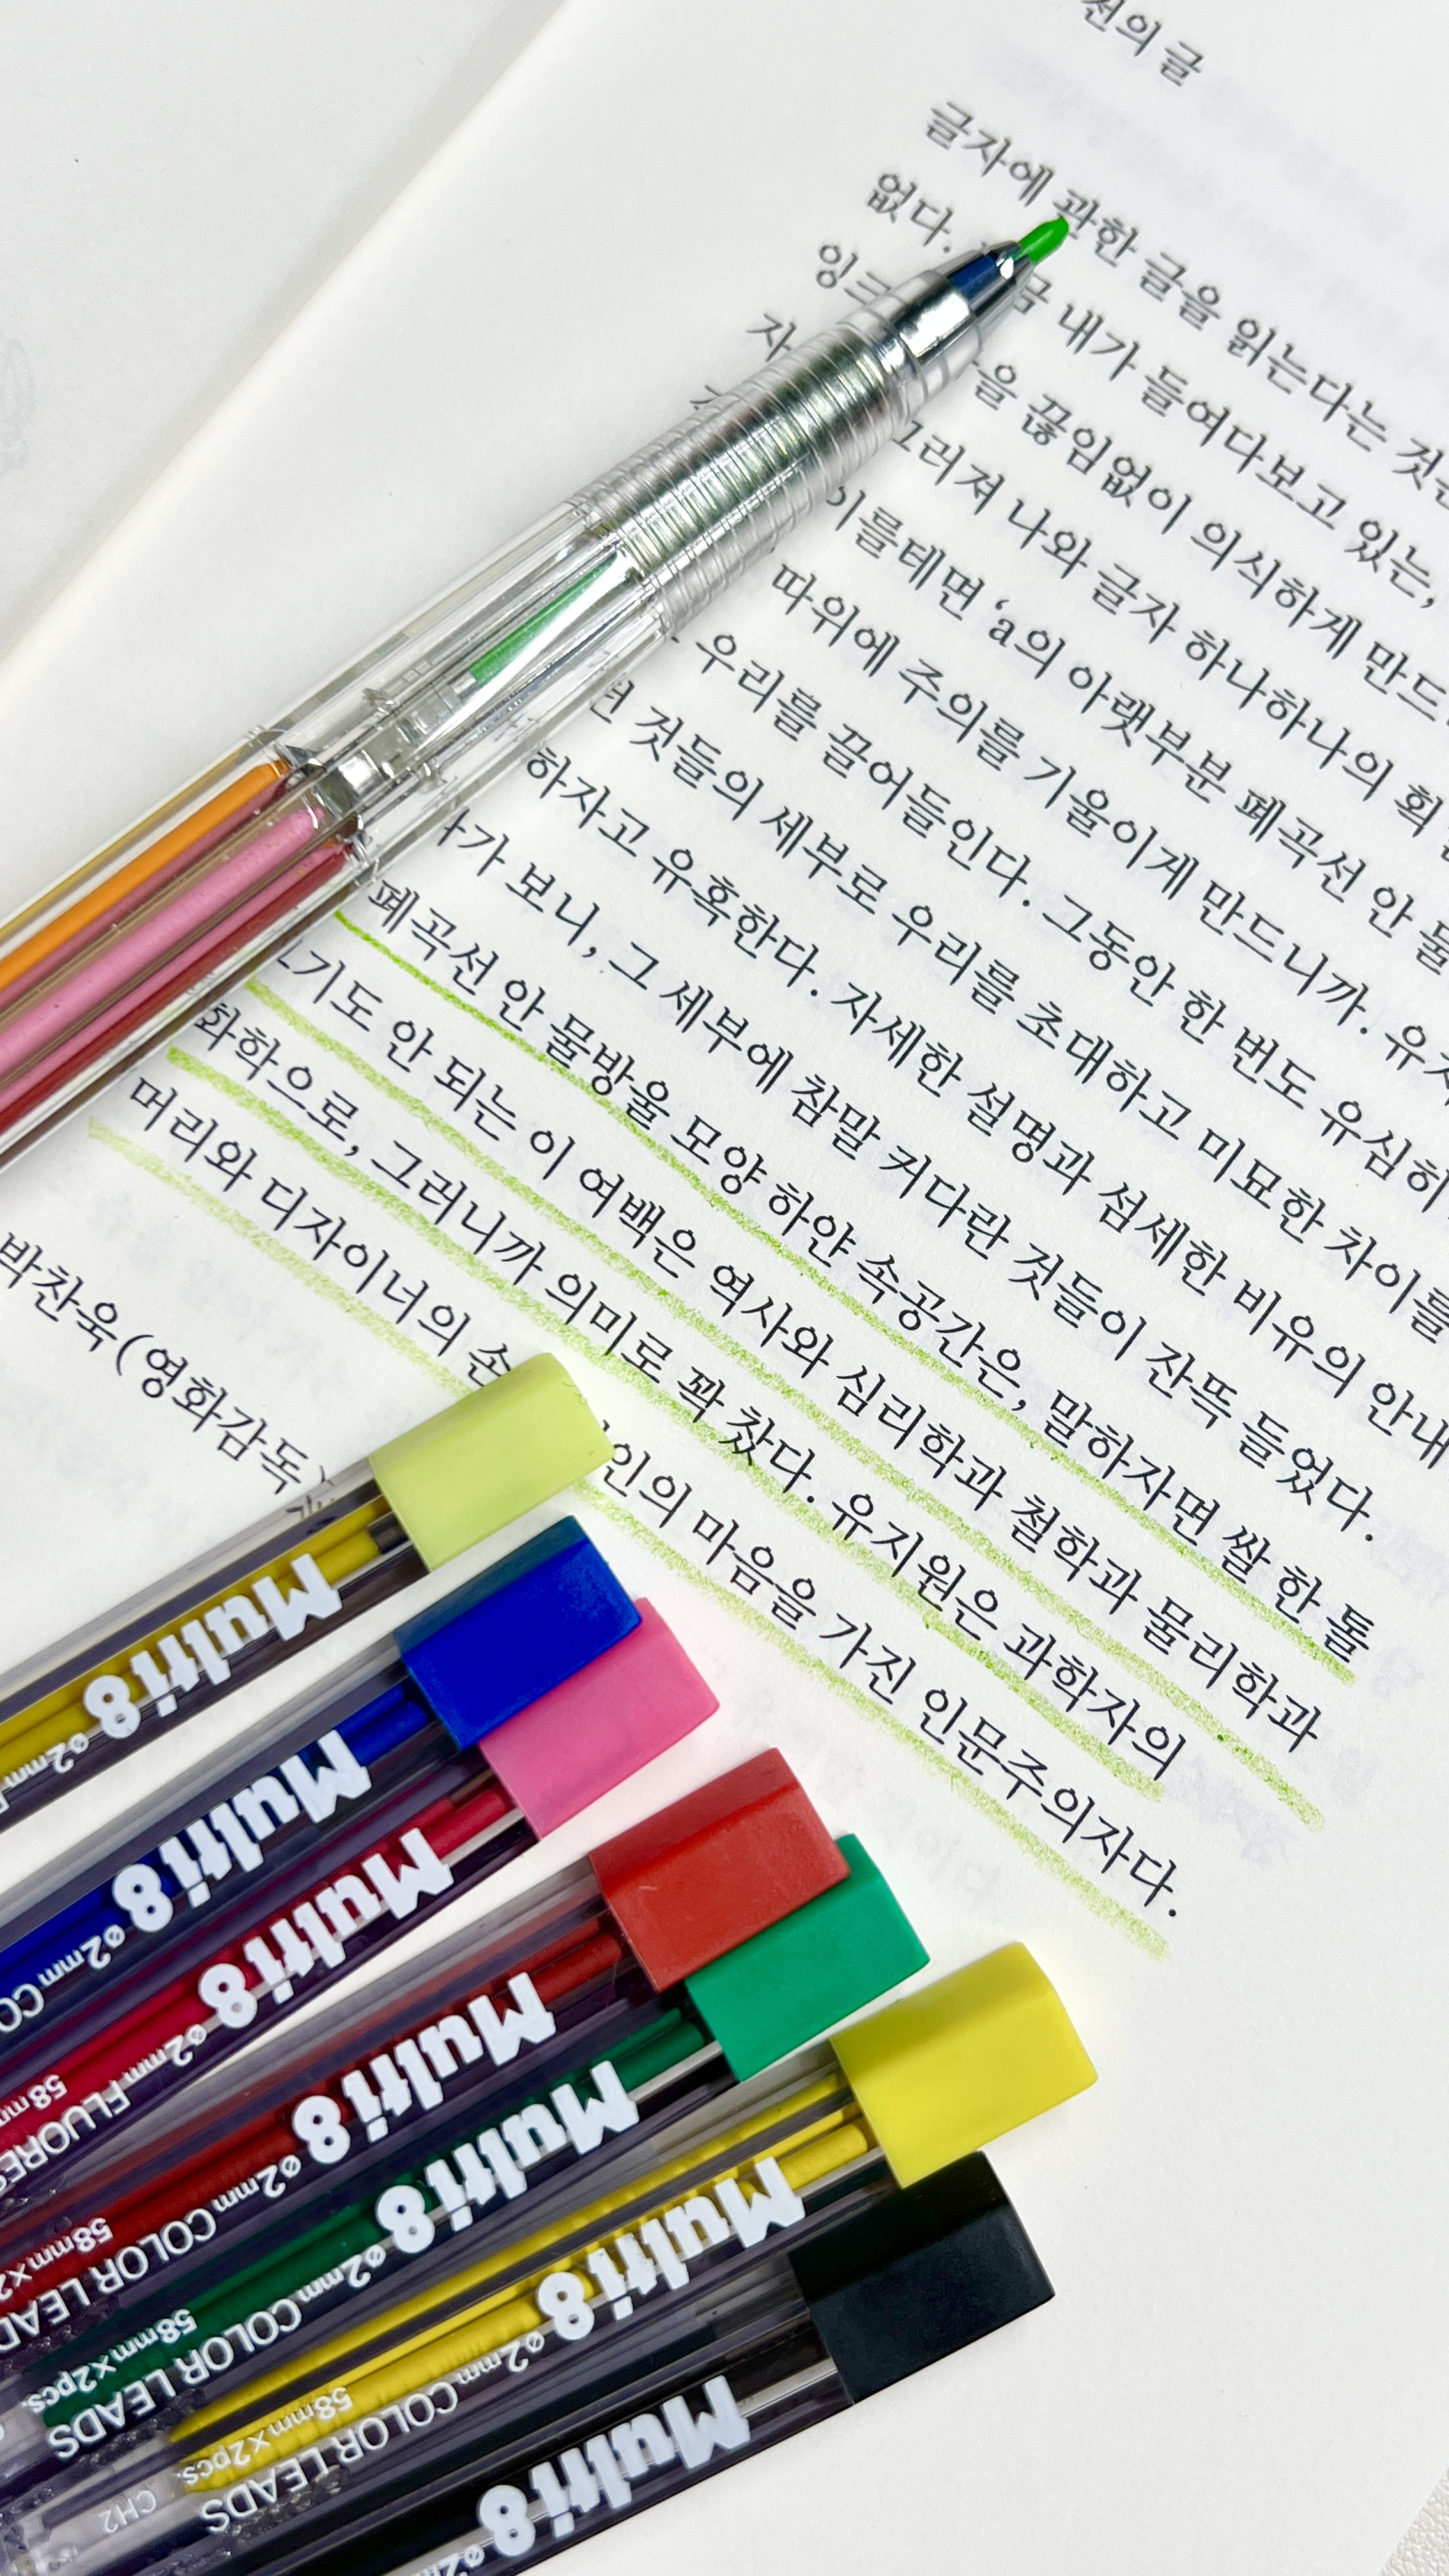 글자에 관한 글을 읽는다는 것은
없다. 내가 들여다보고 있는,
잉크 끊임없이 의식하게 만드
나와 글자 하나하나의 획
이를테면 ‘a의 아랫부분 폐곡선 안 물
따위에 주의를 기울이게 만드니까. 유지
우리를 끌어들인다. 그동안 한 번도 유심히
것들의 세부로 우리를 초대하고 미묘한 차이를
하자고 유혹한다. 자세한 설명과 섬세한 비유의 안내
보니, 그 세부에 참말 커다란 것들이 잔뜩 들었다.
폐곡선 안 물방울 모양 하얀 속공간은, 말하자면 쌀 한 톨
안 되는 이 여백은 역사와 심리학과 철학과 물리학과
화학으로, 그러니까 의미로 꽉 찼다. 유지원은 과학자의
머리와 디자이너의 손 인의 마음을 가진 인문주의자다.
박찬욱(영화감독)
Multi 8 ø2mm
Multi 8 ø2mm CO
Multi 8 ø2mm FLUORES
58mm
Multi 8 ø2mm COLOR LEAD
58mm×2
Multi 8 ø2mm COLOR LEADS
58mm×2pcs.
Multi 8 ø2mm COLOR LEADS
58mm×2pcs.
CH2
Multi 8 ø2m